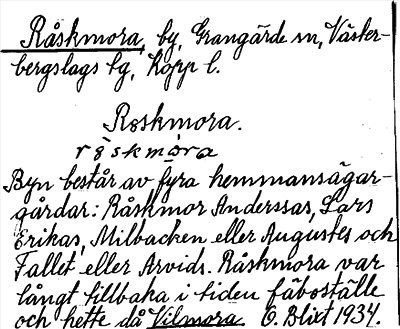 Råskmora, by, Grangärde sn, Väster-
bergslags tg, Kopp l.
Roskmora.
röskmòra
Byn består av fyra hemmansägar-
gårdar: Råskmor Anderssas, Lars
Erikas, Milbacken eller Augustes och
Fallet eller Arvids. Råskmora var
långt tillbaka i tiden fäboställe
och hette då Vilmora. O. Blixt 1934.